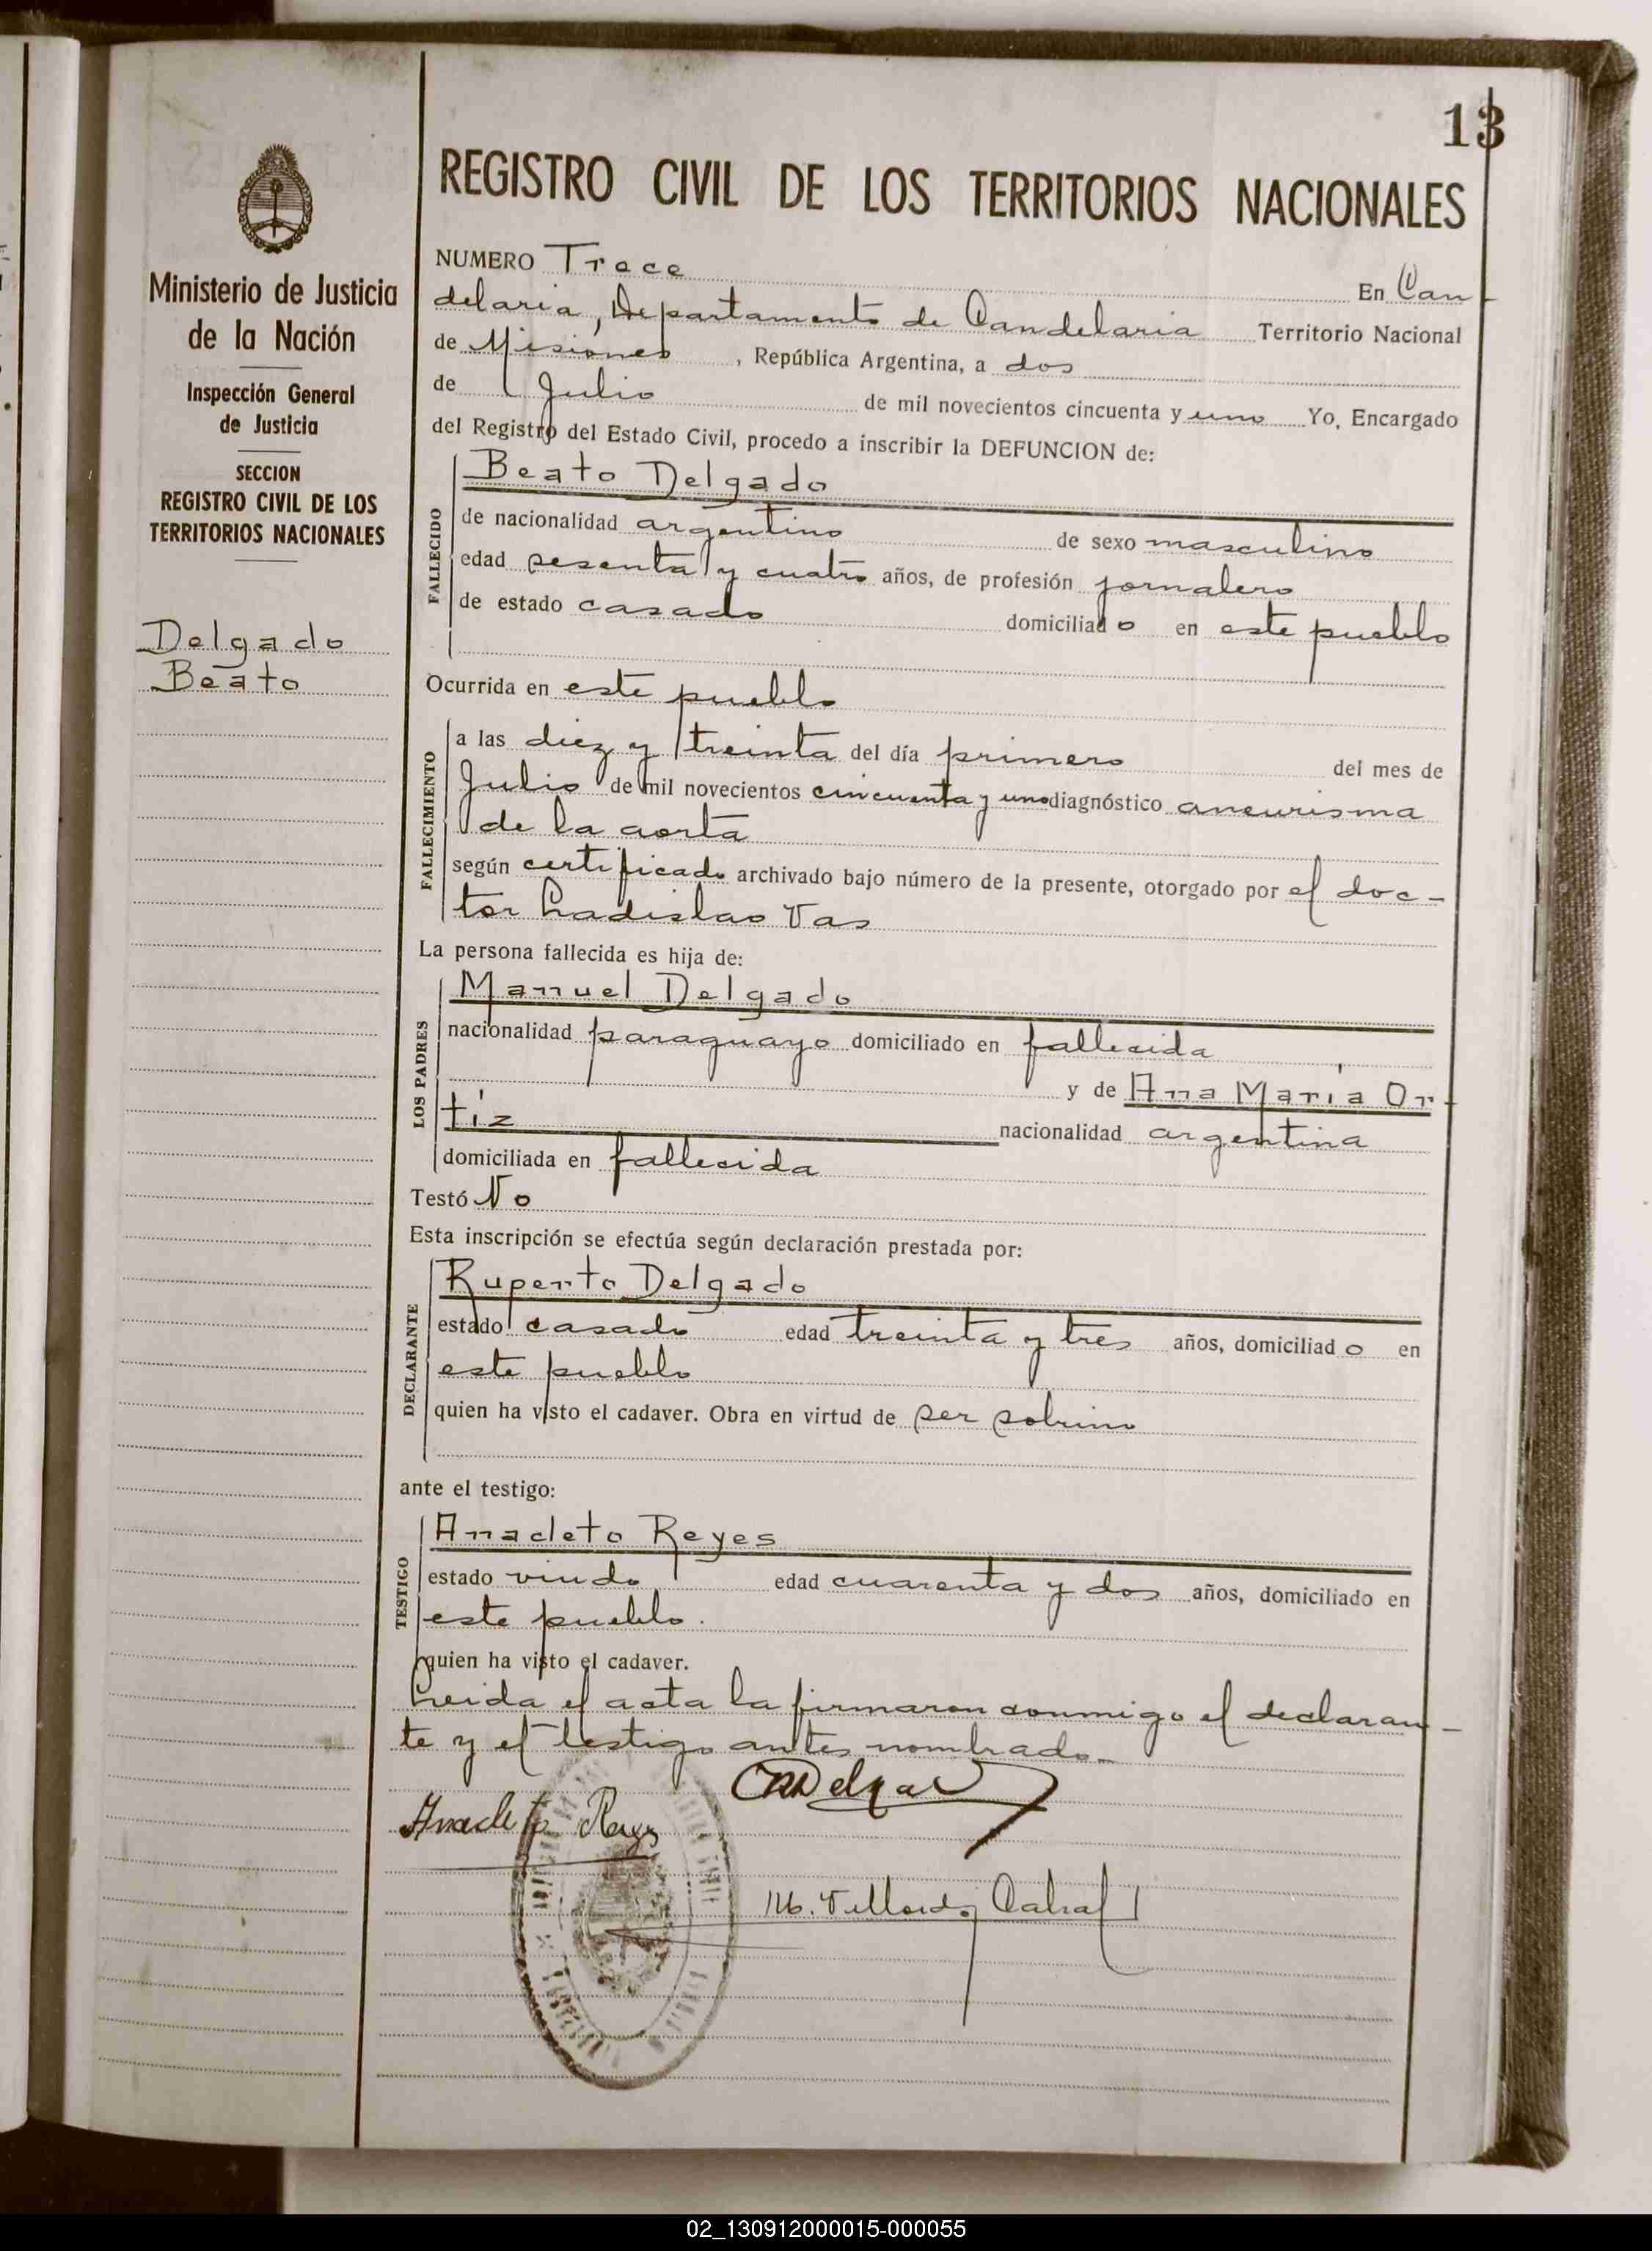 13
REGISTRO CIVIL DE LOS TERRITORIOS NACIONALES
Ministerio de Justicia
de la Nación
Inspección General
de Justicia
SECCION
REGISTRO CIVIL DE LOS
TERRITORIOS NACIONALES
Delgado
Beato
NUMERO Trece En Can-
delaria, Departamento de Candelaria Territorio Nacional
de Misiones, República Argentina, a dos
de Julio de mil novecientos cincuenta y uno Yo, Encargado
del Registro del Estado Civil, procedo a inscribir la DEFUNCION de:
FALLECIDO
Beato Delgado
de nacionalidad argentino de sexo masculino
edad sesenta y cuatro años, de profesión jornalero
de estado casado domiciliado en este pueblo
Ocurrida en este pueblo
FALLECIMIENTO
a las diez y treinta del día primero del mes de
Julio de mil novecientos cincuenta y uno diagnóstico aneurisma
de la aorta
según certificado archivado bajo número de la presente, otorgado por el doc-
tor Ladislao Vas
La persona fallecida es hija de:
LOS PADRES
Manuel Delgado
nacionalidad paraguayo domiciliado en fallecida
y de Ana María Or-
tiz nacionalidad argentina
domiciliada en fallecida
Testó No
Esta inscripción se efectúa según declaración prestada por:
DECLARANTE
Ruperto Delgado
estado casado edad treinta y tres años, domiciliado en
este pueblo
quien ha visto el cadaver. Obra en virtud de ser sobrino
ante el testigo:
TESTIGO
Anacleto Reyes
estado viudo edad cuarenta y dos años, domiciliado en
este pueblo.
quien ha visto el cadaver.
Leida el acta la firmaron conmigo el declaran-
te y el testigo antes nombrado-
Anacleto Reyes
Cabral
02_130912000015-000055